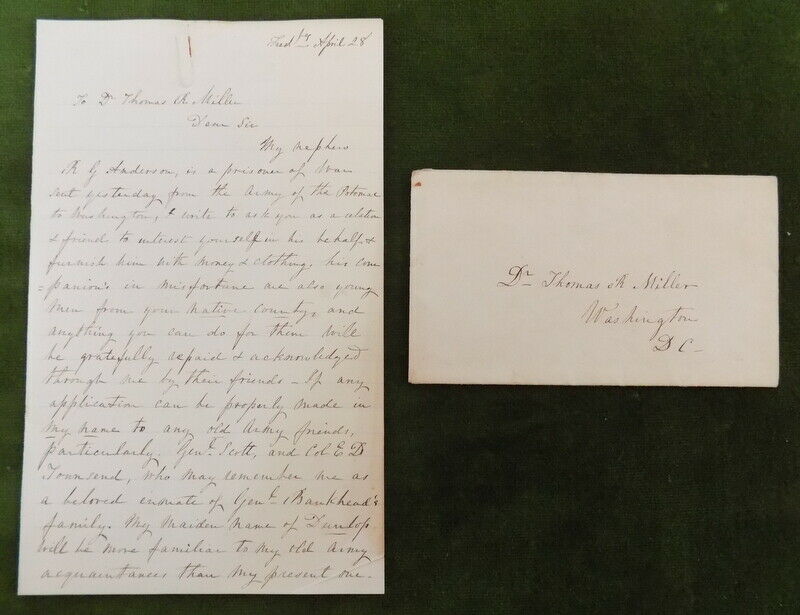 Fredbg April 28
To Dr Thomas R Miller
Dear Sir
My nephew
R G Anderson, is a prisoner of War
sent yesterday from the Army of the Potomac
to Washington, I write to ask you as a relation
& friend to interest yourself in his behalf, &
furnish him with money & clothing, his com
=panion's in misfortune are also young
men from your native County, and
anything you can do for them will
be gratefully repaid & acknowledged
through me by their friends - If any
application can be properly made in
my name to any old Army friends,
particularly. Genl. Scott, and Col E D
Townsend, who may remember me as
a beloved inmate of Genl. Bankhead's
family. My Maiden name of Dunlop
will be more familiar to my old Army
acquaintances than my present one.
Dr Thomas R Miller
Washington
D C -